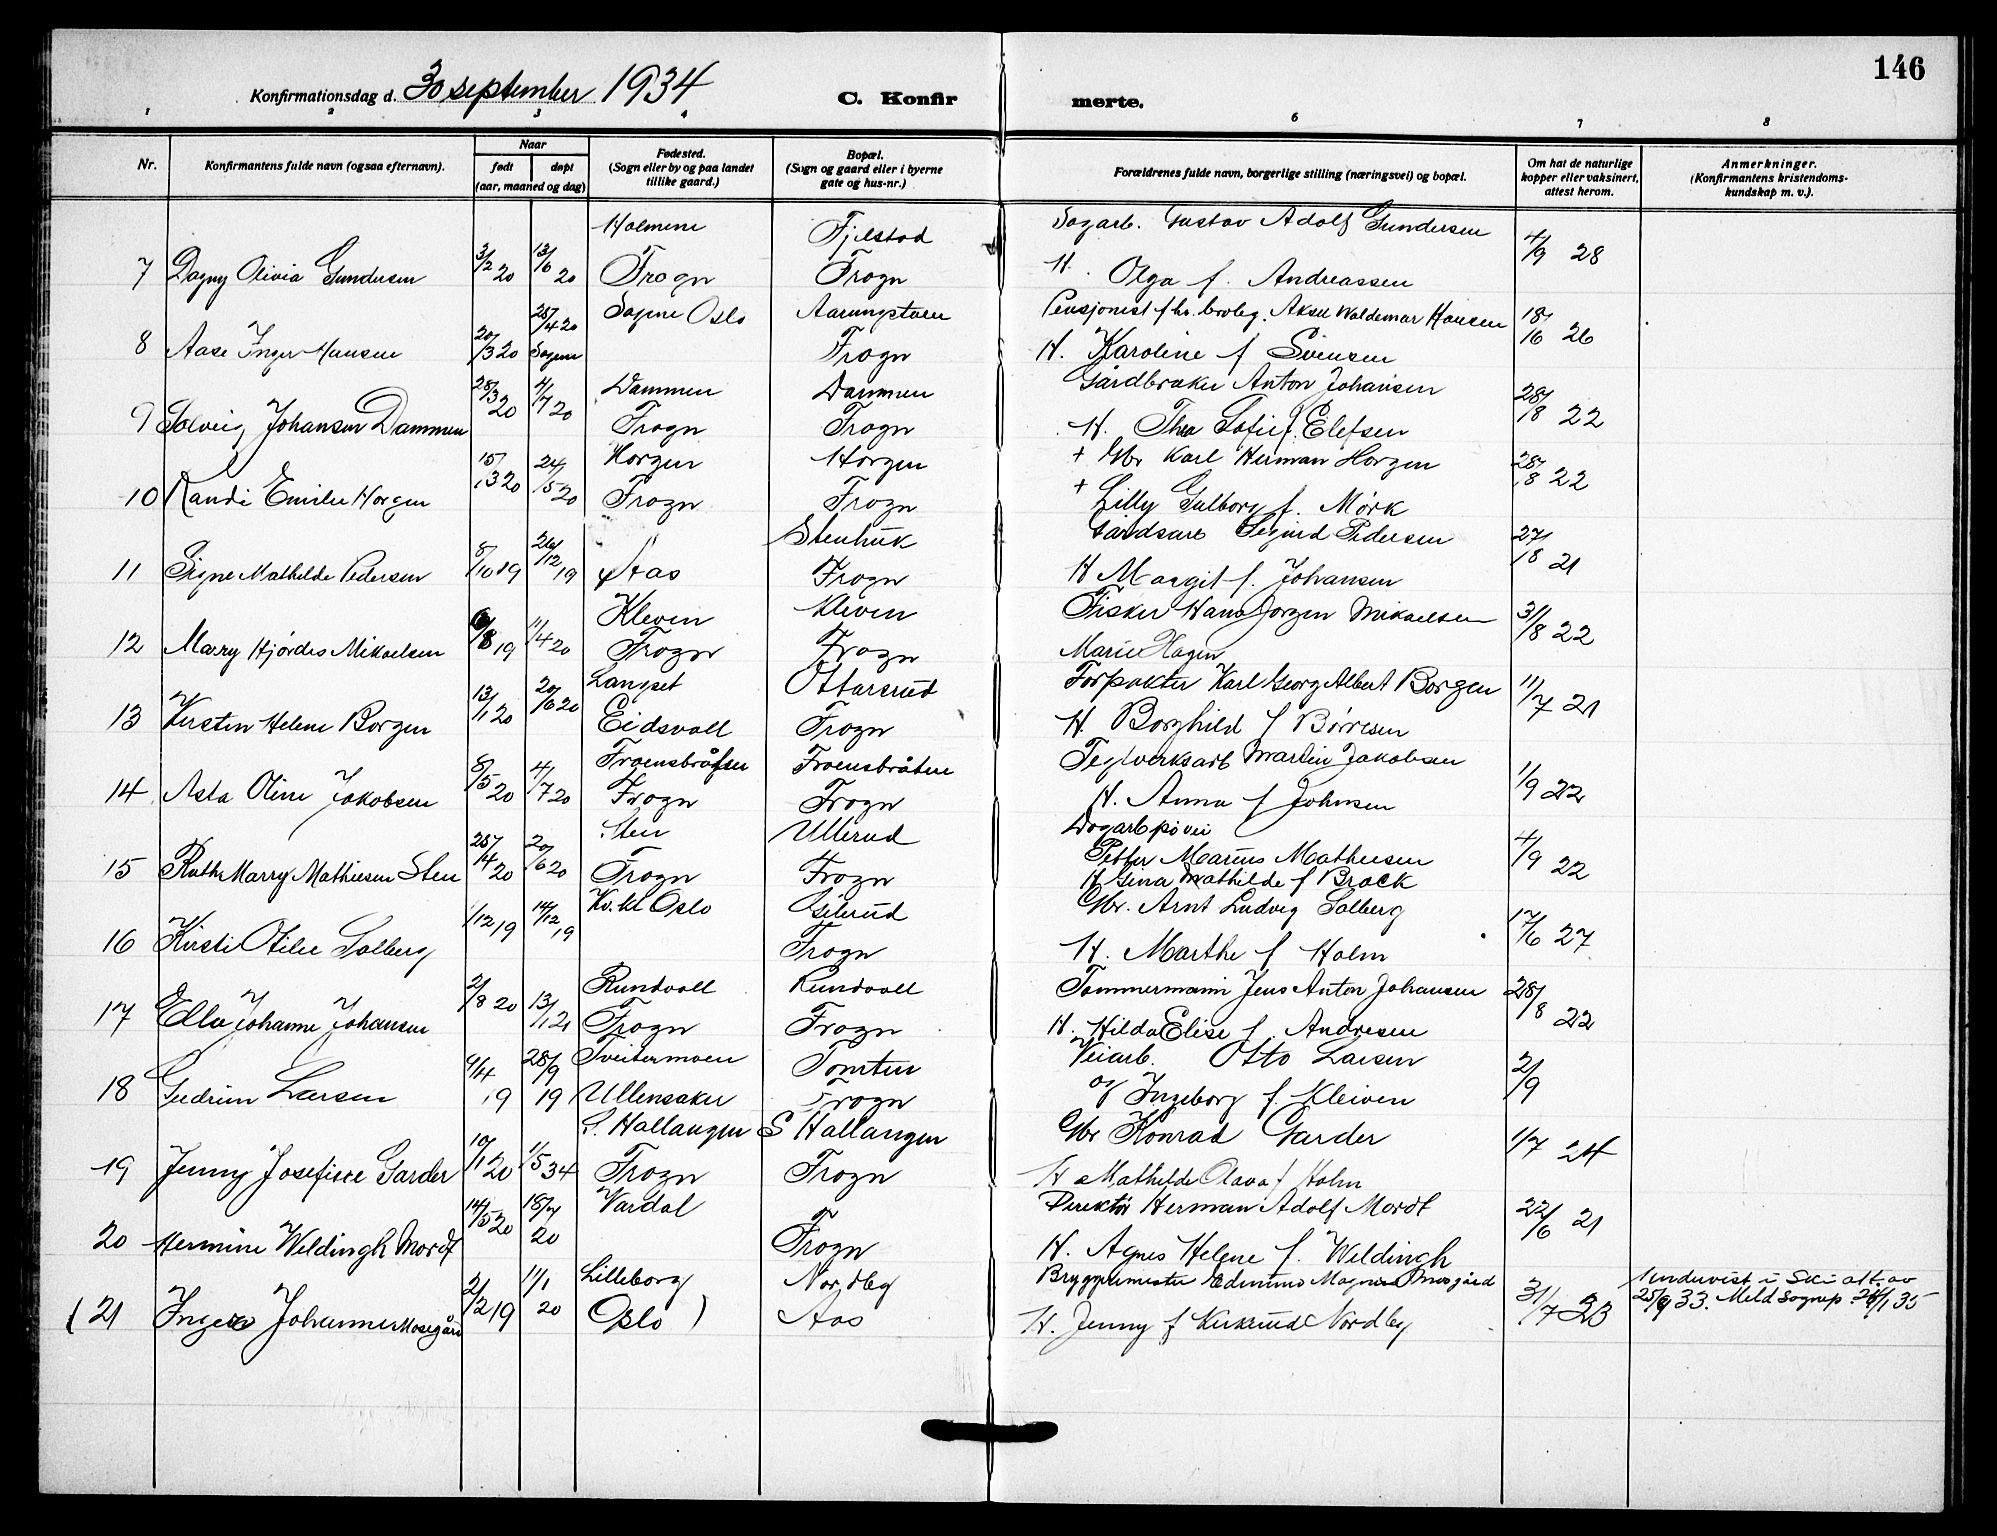 146
Konfirmationsdag d. 30 september 1934
C. Konfirmerte.
1 2 3 4 6 7 8
Nr.
Konfirmantens fulde navn (ogsaa efternavn).
Naar
født
døpt
(aar, maaned og dag)
Fødested.
(Sogn eller by og paa landet
tillike gaard.)
Bopæl.
(Sogn og gaard eller i byerne
gate og hus-nr.)
Forældrenes fulde navn, borgerlige stilling (næringsvei) og bopæl.
Om hat de naturlige
kopper eller vaksinert,
attest herom.
Anmerkninger.
(Konfirmantens kristendoms-
kundskap m. v.).
Holmene Fjelstad Sagarb. Gustav Adolf Gundersen
7 Dagny Olivia Gundersen 3/2 20 13/6 20 Frogn Frogn H. Olga f. Andreassen 4/9 28
Sagene Oslo Aarungstuen Pensjonist Aksel Waldemar Hansen
8 Aase Inger Hansen 20/3 20 25/4 20 Sagene Frogn H. Karoline f Svensen 18/16 26
Dammen Dammen Gårdbruker Anton Johansen
9 Solveig Johansen Dammen 28/3 20 4/7 20 Frogn Frogn H. Thea Sofie f. Elefsen 28/8 22
Horgen Horgen + Gbr Karl Herman Horgen
10 Randi Emilie Horgen 15/3 20 24/5 20 Frogn Frogn + Lilly Gulborg f. Mørk 28/8 22
Stenhuk Gårdsarb Sigurd Pedersen
11 Signe Mathilde Pedersen 8/10 19 26/12 19 Aas Frogn H Margit f. Johansen 27/8 21
Kleven Kleven Fisker Hans Jørgen Mikaelsen
12 Marry Hjørdis Mikaelsen 6/8 19 11/4 20 Frogn Frogn Marie Hagen 31/8 22
Langset Ottarsrud Forpakter Karl Georg Albert Borgen
13 Kirsten Helene Borgen 13/1 20 20/6 20 Eidsvoll Frogn H. Borghild f Børresen 11/7 21
Froensbråten Froensbråten Teglverksarb Martin Jakobsen
14 Asta Oline Jakobsen 8/5 20 4/7 20 Frogn Frogn H. Anna f Johnsen 1/9 22
Sten Ullerud Dagarb på vei
Petter Marius Mathiesen
15 Ruth Marry Mathiesen Sten 25/4 20 20/6 20 Frogn Frogn H Gina Mathilde f Brock 4/9 22
Kv.kl Oslo Gilerud Gbr. Arnt Ludvig Solberg
16 Kirsti Otilie Solberg 1/12 19 14/12 19 Frogn H. Marthe f Holm 17/6 27
Rundvoll Rundvoll Tømmermann Jens Anton Johansen
17 Ella Johanne Johansen 2/8 20 13/1 21 Frogn Frogn H. Hilda Elise f. Andresen 28/8 22
Tveitermoen Tomten Veiarb. Otto Larsen
18 Gudrun Larsen 4/4 19 28/9 19 Ullensaker Frogn og Ingeborg f. Kleiven 2/9
S. Hallangen S Hallangen Gbr Konrad Garder
19 Jenny Josefine Garder 10/1 20 1/5 34 Frogn Frogn H Mathilde Olava f Holm 1/7 24
Vardal Direktør Herman Adolf Mordt
20 Hermine Weldingh Mordt 14/5 20 18/7 20 Frogn H. Agnes Helene f. Weldingh 22/6 21
Lilleborg Nordby Bryggemester Edminus Magnus Mosegård
(21 Inger Johanne Mosegård 2/2 19 11/1 20 Oslo) Aas H. Jenny f Kirkerud Nordby 31/7 23
Undervist i Ski att. av
25/9 33. Meld Sognep. 26/1 35